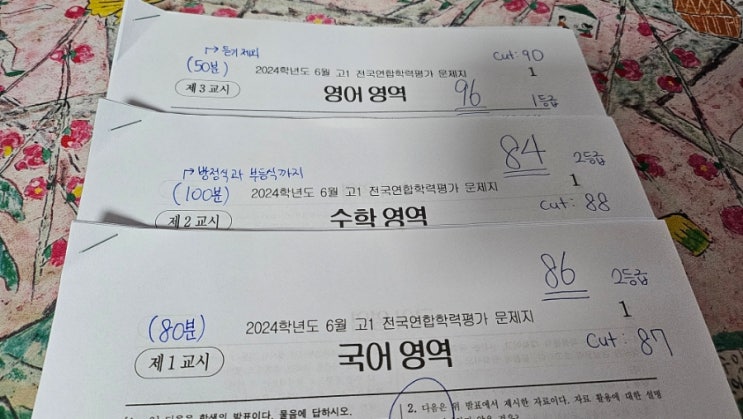 → 듣기 제외
(50분)
2024학년도 6월 고1 전국연합학력평가 문제지
cut: 90
1
제3교시
영어 영역
96
1등급
→ 방정식과 부등식까지
(100분)
2024학년도 6월 고1 전국연합학력평가 문제지
84
2등급
1
제2교시
수학 영역
cut: 88
86
2등급
(80분)
2024학년도 6월 고1 전국연합학력평가 문제지
1
제1교시
국어 영역
cut: 87
다음은 학생의 발표이다. 물음에 답하시오.
2. 다음은 위 발표에서 제시한 자료이다. 자료 활용에 대한 설명